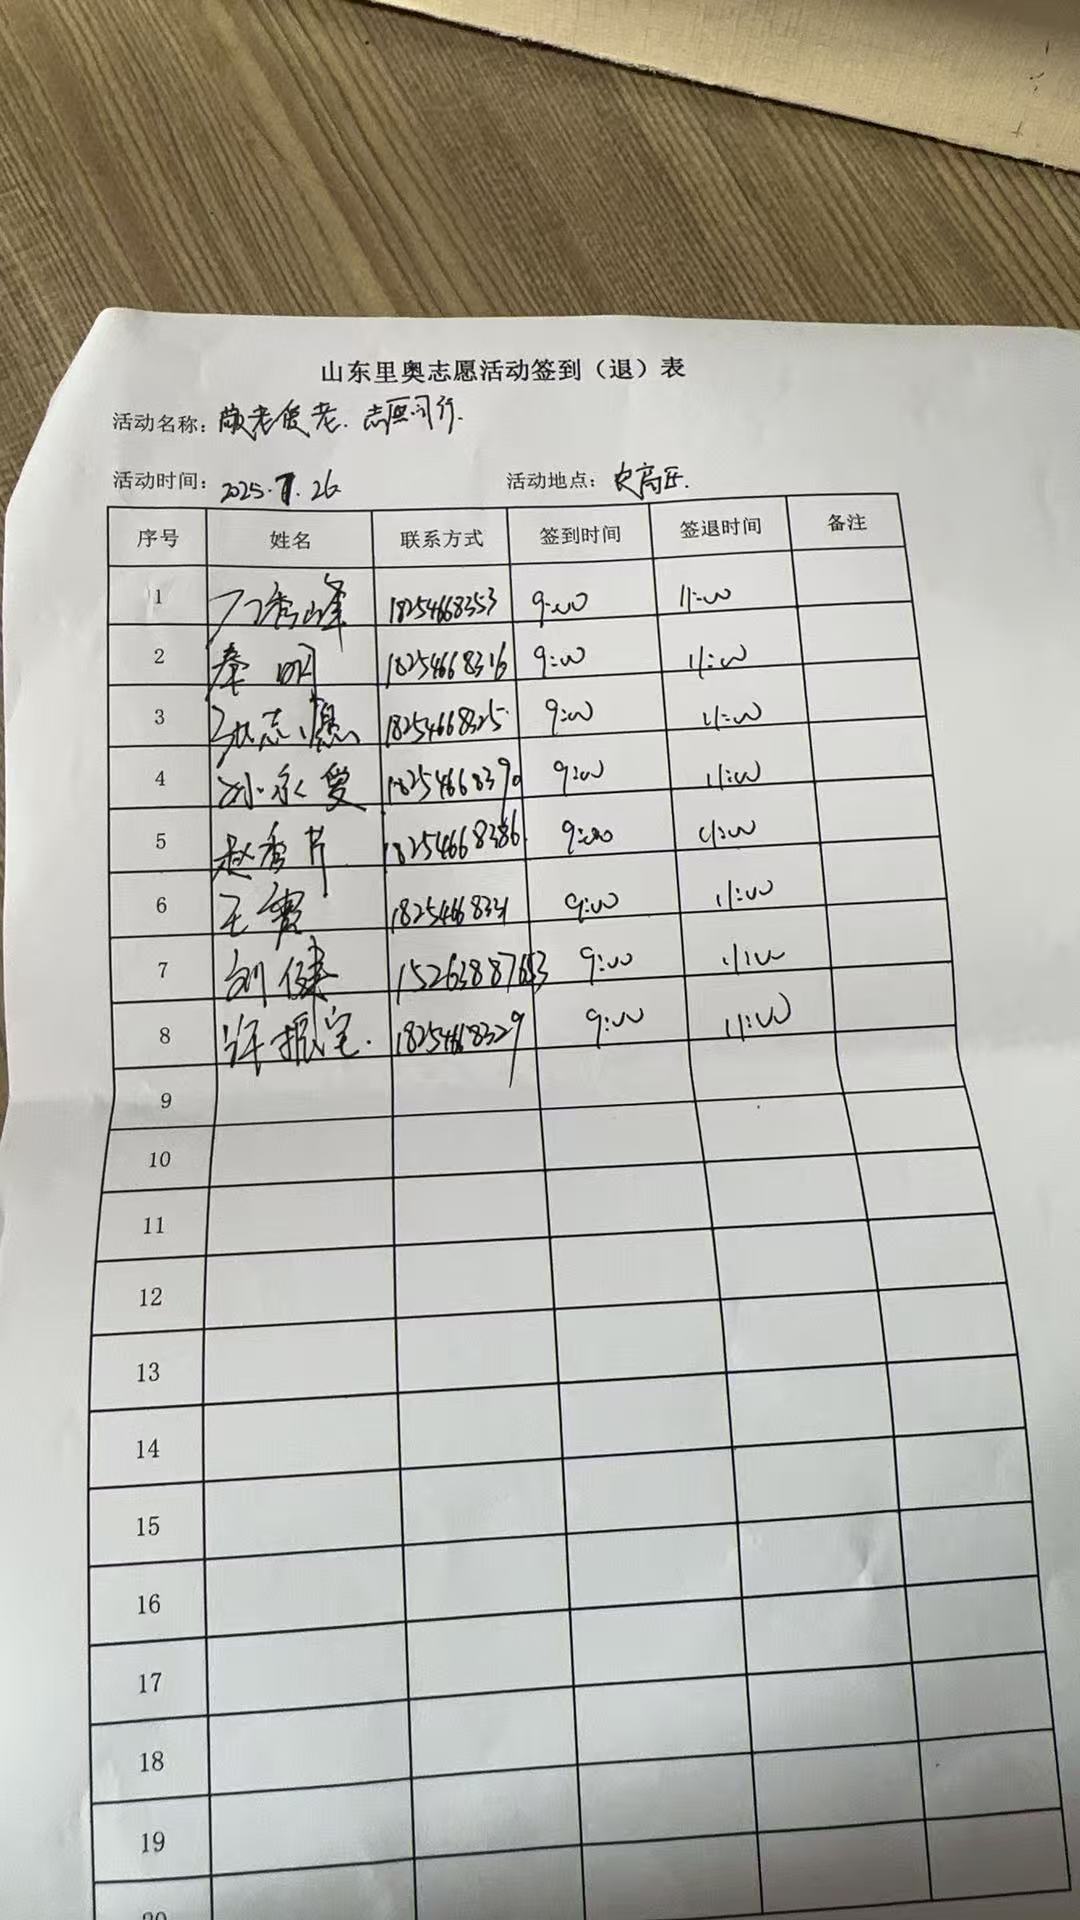 山东里奥志愿活动签到（退）表
活动名称：敬老爱老.志愿同行.
活动时间：2025.7.26 活动地点：史高庄.
序号 姓名 联系方式 签到时间 签退时间 备注
1 秀峰 18254668353 9:00 11:00
2 秦明 18254668316 9:00 11:00
3 张志 18254668325 9:00 11:00
4 孙永爱 18254668390 9:00 11:00
5 赵秀芹 18254668386 9:00 11:00
6 王霞 9:00 11:00
7 刘健 9:00 11:00
8 许振宝. 18254668329 9:00 11:00
9
10
11
12
13
14
15
16
17
18
19
20